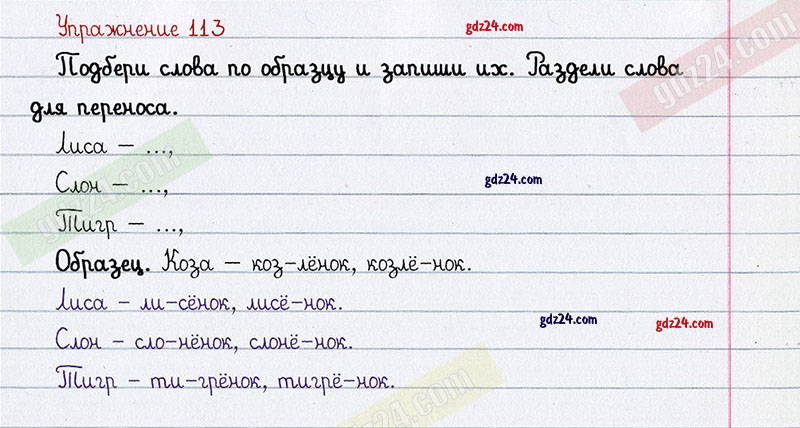 Упражнение 113 gdz24.com
Подбери слова по образцу и запиши их. Раздели слова
для переноса.
Лиса – ...,
Слон – ..., gdz24.com
Тигр – ...,
Образец. Коза – коз-лёнок, козлё-нок.
Лиса - ли-сёнок, лисё-нок.
Слон - сло-нёнок, слонё-нок. gdz24.com gdz24.com
Тигр - ти-грёнок, тигрё-нок.
gdz24.com
gdz24.com
gdz24.com